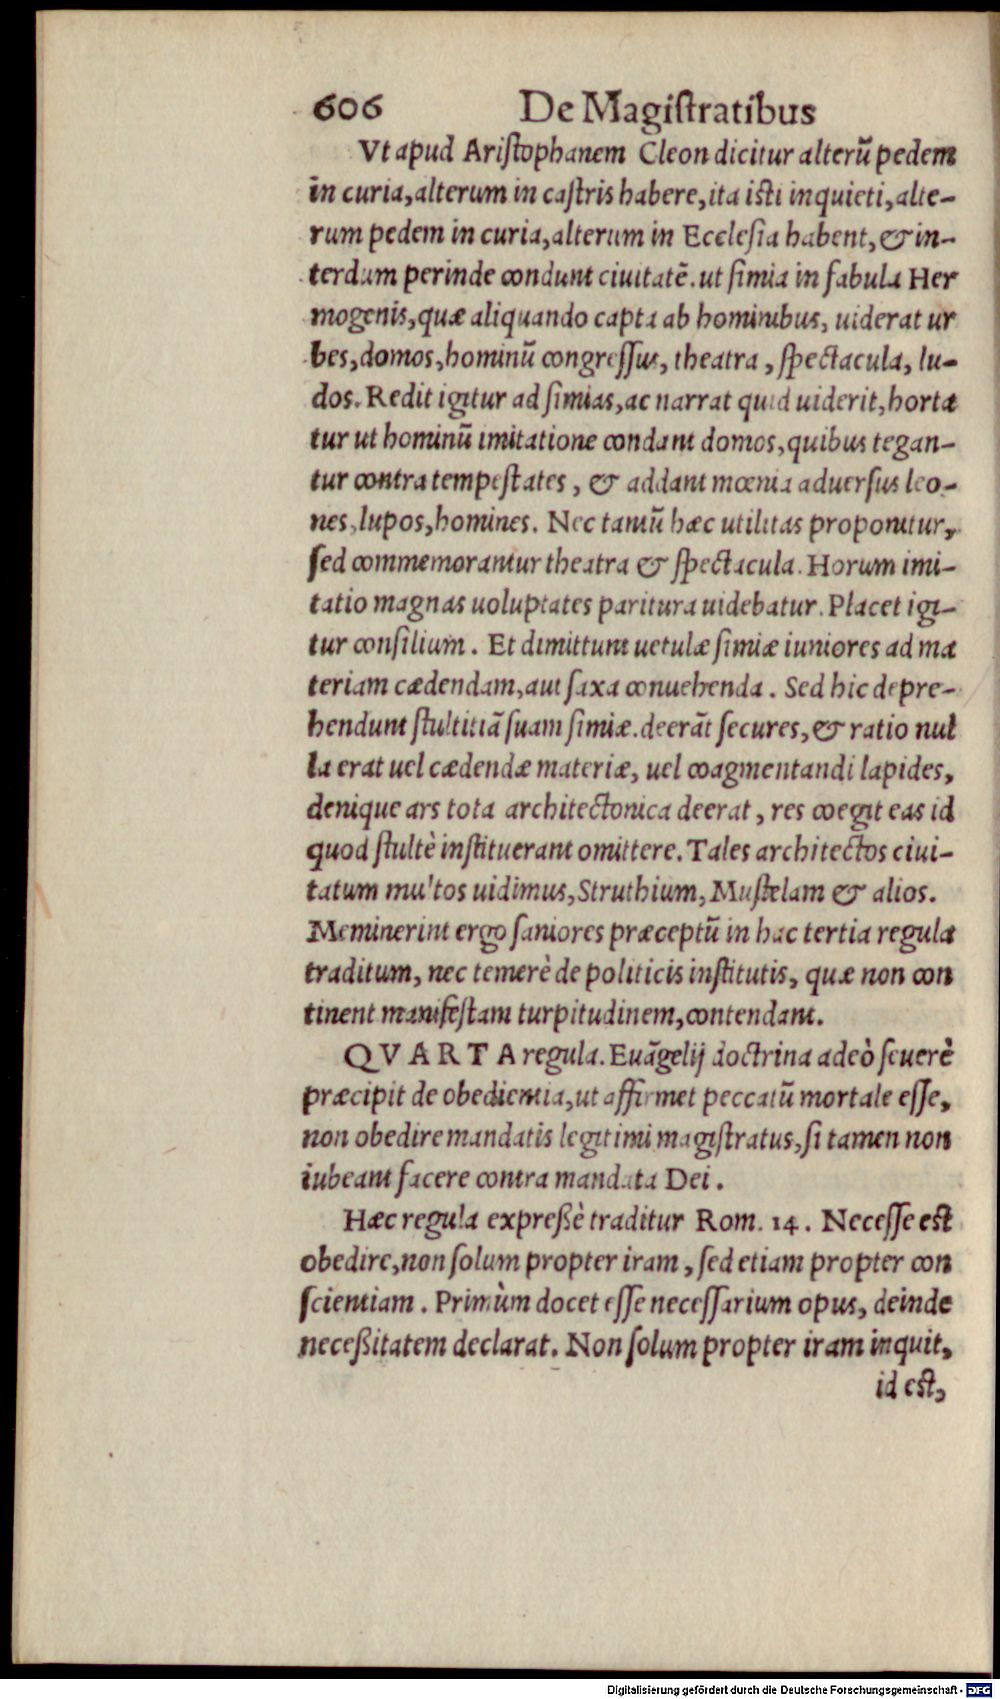 606 De Magiſtratibus
Vt apud Ariſtophanem Cleon dicitur alterũ pedem
in curia, alterum in caſtris habere, ita iſti inquieti, alte-
rum pedem in curia, alterum in Eccleſia habent, & in-
terdum perinde condunt ciuitatẽ. ut ſimia in fabula Her
mogenis, quæ aliquando capta ab hominibus, uiderat ur
bes, domos, hominũ congreſſus, theatra, ſpectacula, lu-
dos. Redit igitur ad ſimias, ac narrat quid uiderit, horta
tur ut hominũ imitatione condant domos, quibus tegan-
tur contra tempeſtates, & addant mœnia aduerſus leo-
nes, lupos, homines. Nec tantũ hæc utilitas proponitur,
ſed commemorantur theatra & ſpectacula. Horum imi-
tatio magnas uoluptates paritura uidebatur. Placet igi-
tur conſilium. Et dimittunt uetulæ ſimiæ iuniores ad ma
teriam cædendam, aut ſaxa conuehenda. Sed hic depre-
hendunt ſtultitiã ſuam ſimiæ. deerãt ſecures, & ratio nul
la erat uel cædendæ materiæ, uel coagmentandi lapides,
denique ars tota architectonica deerat, res coegit eas id
quod ſtultè inſtituerant omittere. Tales architectos ciui-
tatum multos uidimus, Struthium, Muſtelam & alios.
Meminerint ergo ſaniores præceptũ in hac tertia regula
traditum, nec temerè de politicis inſtitutis, quæ non con
tinent manifeſtam turpitudinem, contendant.
QVARTA regula. Euãgelij doctrina adeò ſeuerè
præcipit de obedientia, ut affirmet peccatũ mortale eſſe,
non obedire mandatis legitimi magiſtratus, ſi tamen non
iubeant facere contra mandata Dei.
Hæc regula expreßè traditur Rom. 14. Neceſſe eſt
obedire, non ſolum propter iram, ſed etiam propter con
ſcientiam. Primùm docet eſſe neceſſarium opus, deinde
neceßitatem declarat. Non ſolum propter iram inquit,
id eſt,
Digitalisierung gefördert durch die Deutsche Forschungsgemeinschaft - DFG